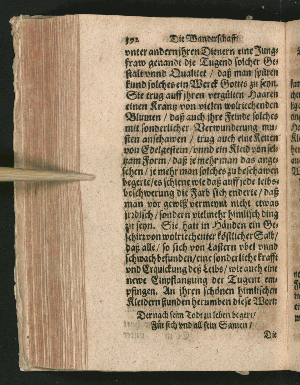 192 Die Wanderschafft
vnter andern jhren Dienern eine Jung-
fraw genandt die Tugend solcher Ge-
stalt vnnd Qualitet / daß man spüren
kund solches ein Werck Gottes zu seyn.
Sie trug auff jhren vergülten Haaren
einen Krantz von vielen wolriechenden
Blumen / daß auch jhre Feinde solches
mit sonderlicher Verwunderung mu-
sten anschawen / trug auch eine Keten
von Edelgestein / vnnd ein Kleid von selt-
zam Form / daß je mehr man das ange-
sehen / je mehr man solches zu beschawen
begerte / es schiene wie daß auff jede Leibs-
bschwerung die Farb sich enderte / daß
man vor gewiß vermeint nicht etwas
irdisch / sondern vielmehr himlisch ding
zu seyn. Sie hatt in Händen ein Ge-
schirr von wolriechenter köstlicher Salb /
daß alle / so sich von Lastern vbel vnnd
schwach befunden / eine sonderliche krafft
vnd Erquickung deß Leibs / wie auch eine
newe Einpflantzung der Tugent em-
pfingen. An jhren schönen himlischen
Kleidern stunden herumben diese Wort
Der nach seim Todt zu leben begert /
Für sich vnd all sein Samen /
Die